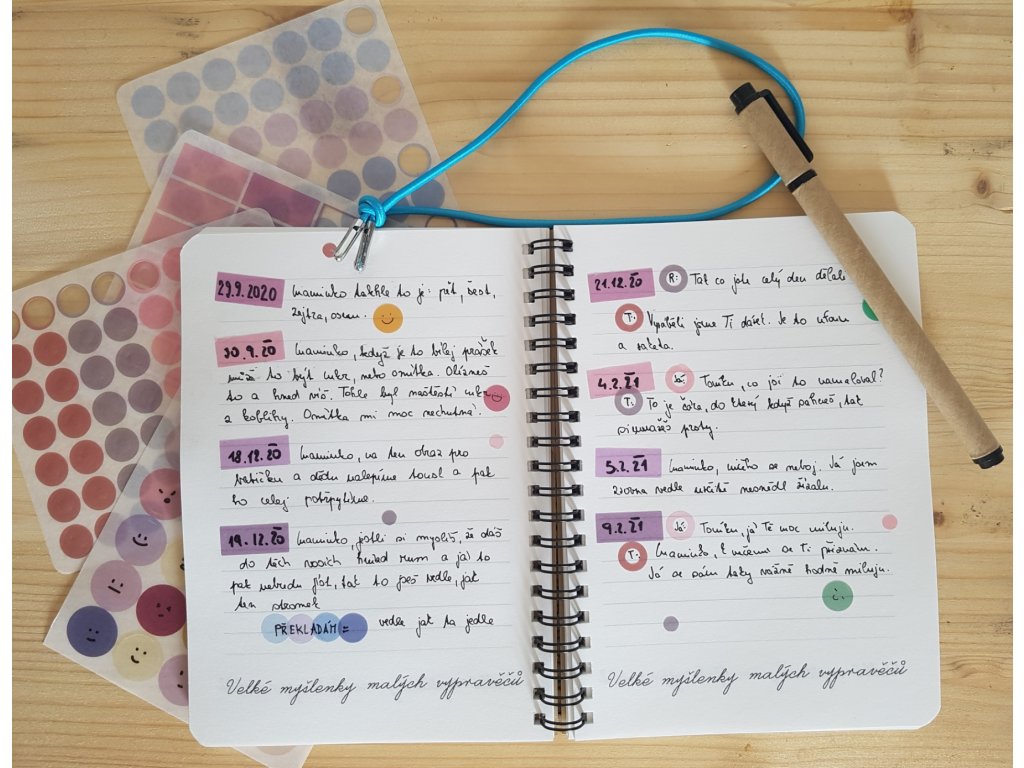 29.9.2020 Maminko takhle to je: pět, šest,
zejtra, osum.
30.9.20 Maminko, když je to bílej prášek
může to být cukr, nebo omítka. Olízneš
to a hned víš. Tohle byl naštěstí cukr
z koblihy. Omítka mi moc nechutná.
18.12.20 Maminko, na ten obraz pro
babičku a dědu nalepíme sousl a pak
ho celej potřpytíme.
19.12.20 Maminko, jestli si myslíš, že dáš
do těch vosích hnízd rum a já to
pak nebudu jíst, tak to jseš vedle, jak
ten stromek
PŘEKLADÁM = vedle jak ta jedle
Velké myšlenky malých vypravěčů
21.12.20 R: Tak co jste celý den dělali
T: Vyráběli jsme Ti dárek. Je to ufoun
a raketa.
4.2.21 Já: Tomíku, co jsi to namaloval?
T: To je čára, do který když šáhneš, tak
prsty.
5.2.21 Maminko, ničeho se neboj. Já jsem
zrovna vedle určitě nesnědl žížalu.
9.2.21 Já: Tomíku, já Tě moc miluju.
T: Maminko, k něčemu se Ti přiznám.
Já se sám taky vážně hodně miluju.
Velké myšlenky malých vypravěčů